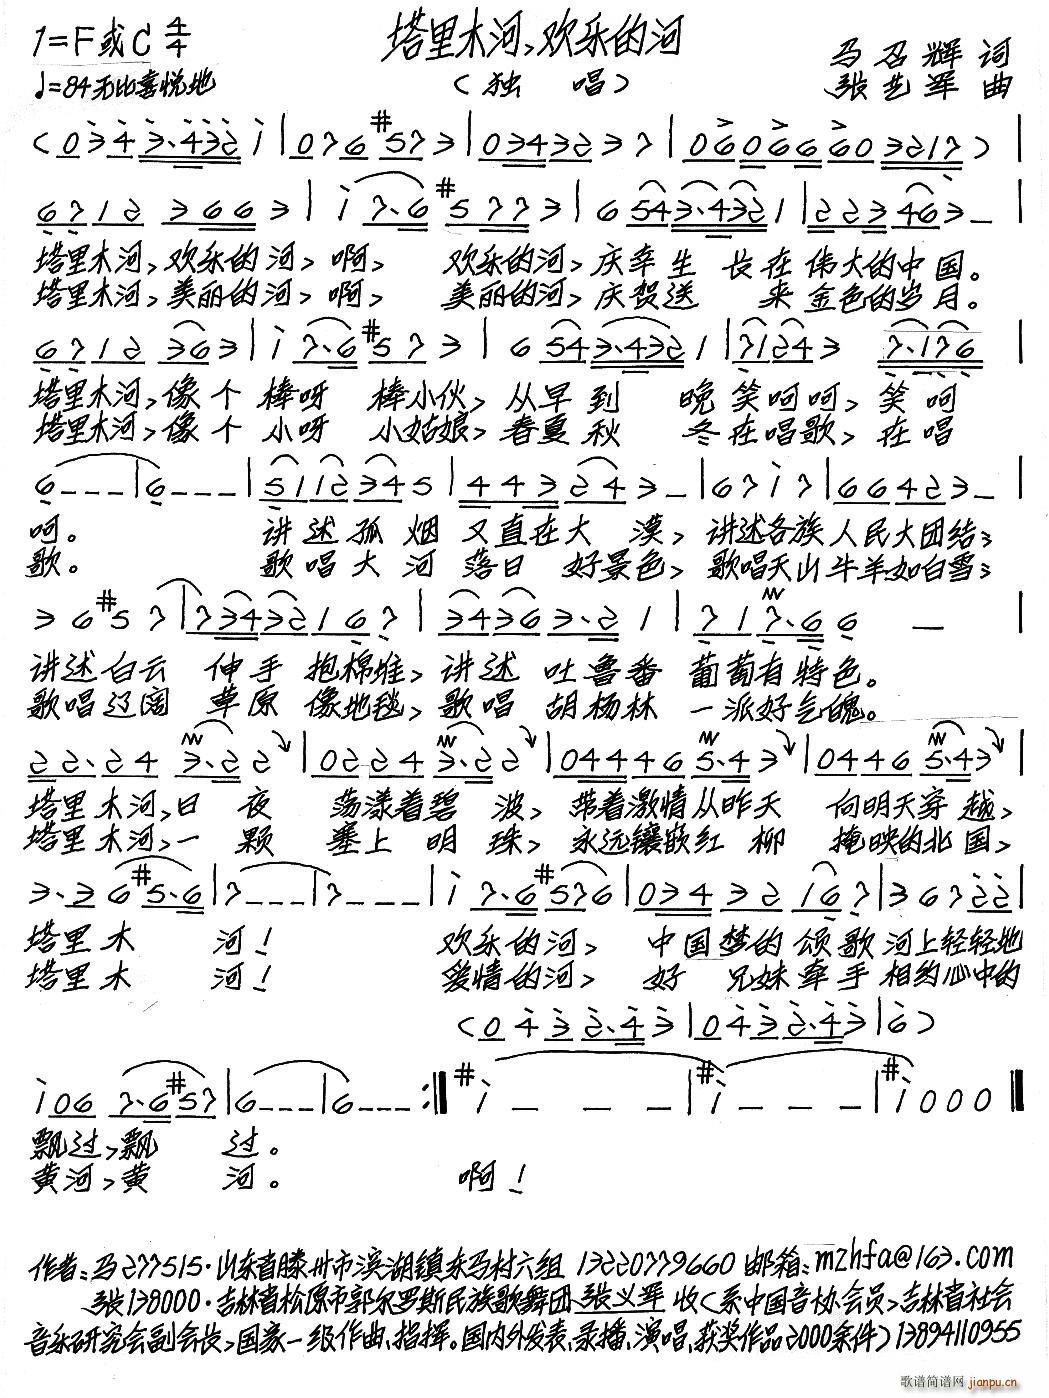 塔里木河,欢乐的河
1=F或C 4/4
♩=84无比喜悦地
(独 唱)
马召辉 词
张艺军 曲
塔里木河,欢乐的河,啊, 欢乐的河,庆幸生 长在伟大的中国。
塔里木河,美丽的河,啊, 美丽的河,庆贺送 来金色的岁月。
塔里木河,像个棒呀 棒小伙,从早到 晚笑呵呵,笑呵
塔里木河,像个小呀 小姑娘,春夏秋 冬在唱歌,在唱
呵。 讲述孤烟又直在大漠,讲述各族人民大团结;
歌。 歌唱大河落日好景色,歌唱天山牛羊如白雪;
讲述白云伸手抱棉堆,讲述吐鲁番葡萄有特色。
歌唱辽阔草原像地毯,歌唱胡杨林一派好气魄。
塔里木河,日夜荡漾着碧波,带着激情从昨天向明天穿越,
塔里木河,一颗塞上明珠,永远镶嵌红柳掩映的北国,
塔里木 河! 欢乐的河,中国梦的颂歌河上轻轻地
塔里木 河! 爱情的河,好兄妹牵手相约心中的
飘过,飘 过。
黄河,黄 河。 啊!
作者:马277515·山东省滕州市滨湖镇东马村六组 13220779660 邮箱:mzhfa@163.com
张138000·吉林省松原市郭尔罗斯民族歌舞团 张义军 收(系中国音协会员,吉林省社会
音乐研究会副会长,国家一级作曲、指挥。国内外发表、录播、演唱、获奖作品2000余件)13894110955
歌谱简谱网 jianpu.cn